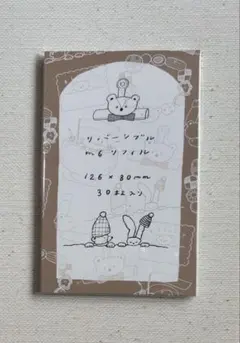 リバーシブル
m6 リフィル
126×80mm
30枚入り